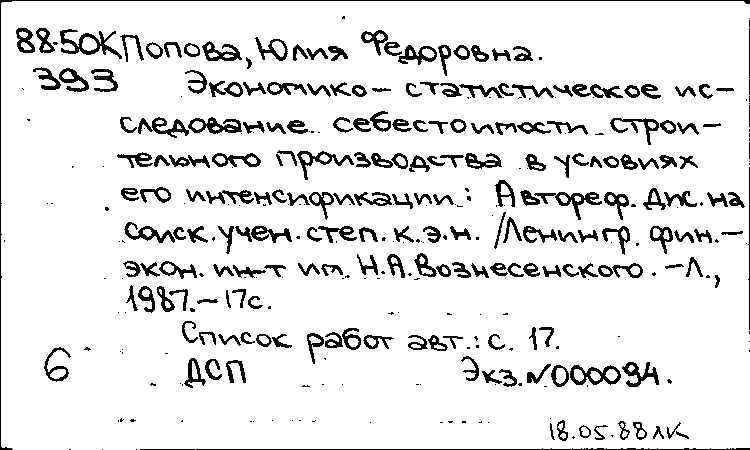 88-50К Попова, Юлия Федоровна.
393 Экономико-статистическое ис-
следование себестоимости строи-
тельного производства в условиях
его интенсификации: Автореф. дис. на
соиск. учен. степ. к.э.н. /Ленингр. фин.-
экон. ин-т им. Н.А.Вознесенского. -Л.,
1987.-17с.
Список работ авт.: с. 17.
6 ДСП Экз.№000094.
18.05.88 ЛК